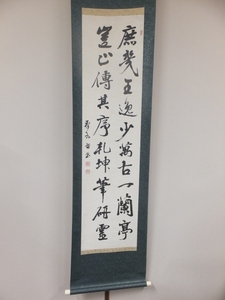 庶幾王逸少萬古一蘭亭
豈止傳其序乾坤筆研靈